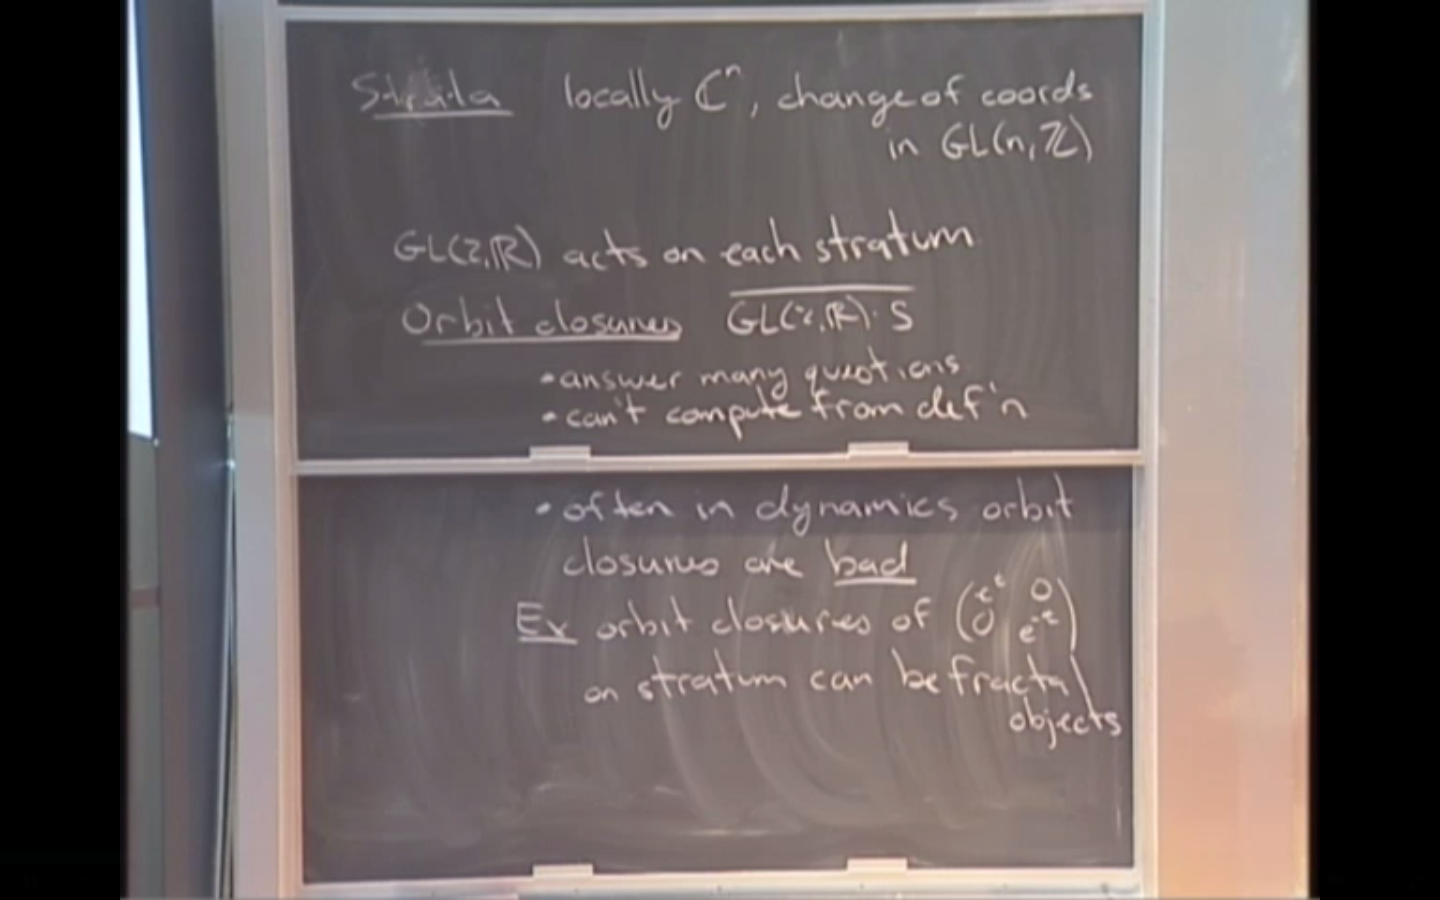 Strata locally ℂⁿ, change of coords
in GL(n,ℤ)
GL(2,ℝ) acts on each stratum
Orbit closures GL(2,ℝ)·S
•answer many questions
•can't compute from def'n
•often in dynamics orbit
closures are bad
Ex orbit closures of (eᵗ 0
0 e⁻ᵗ)
on stratum can be fractal
objects